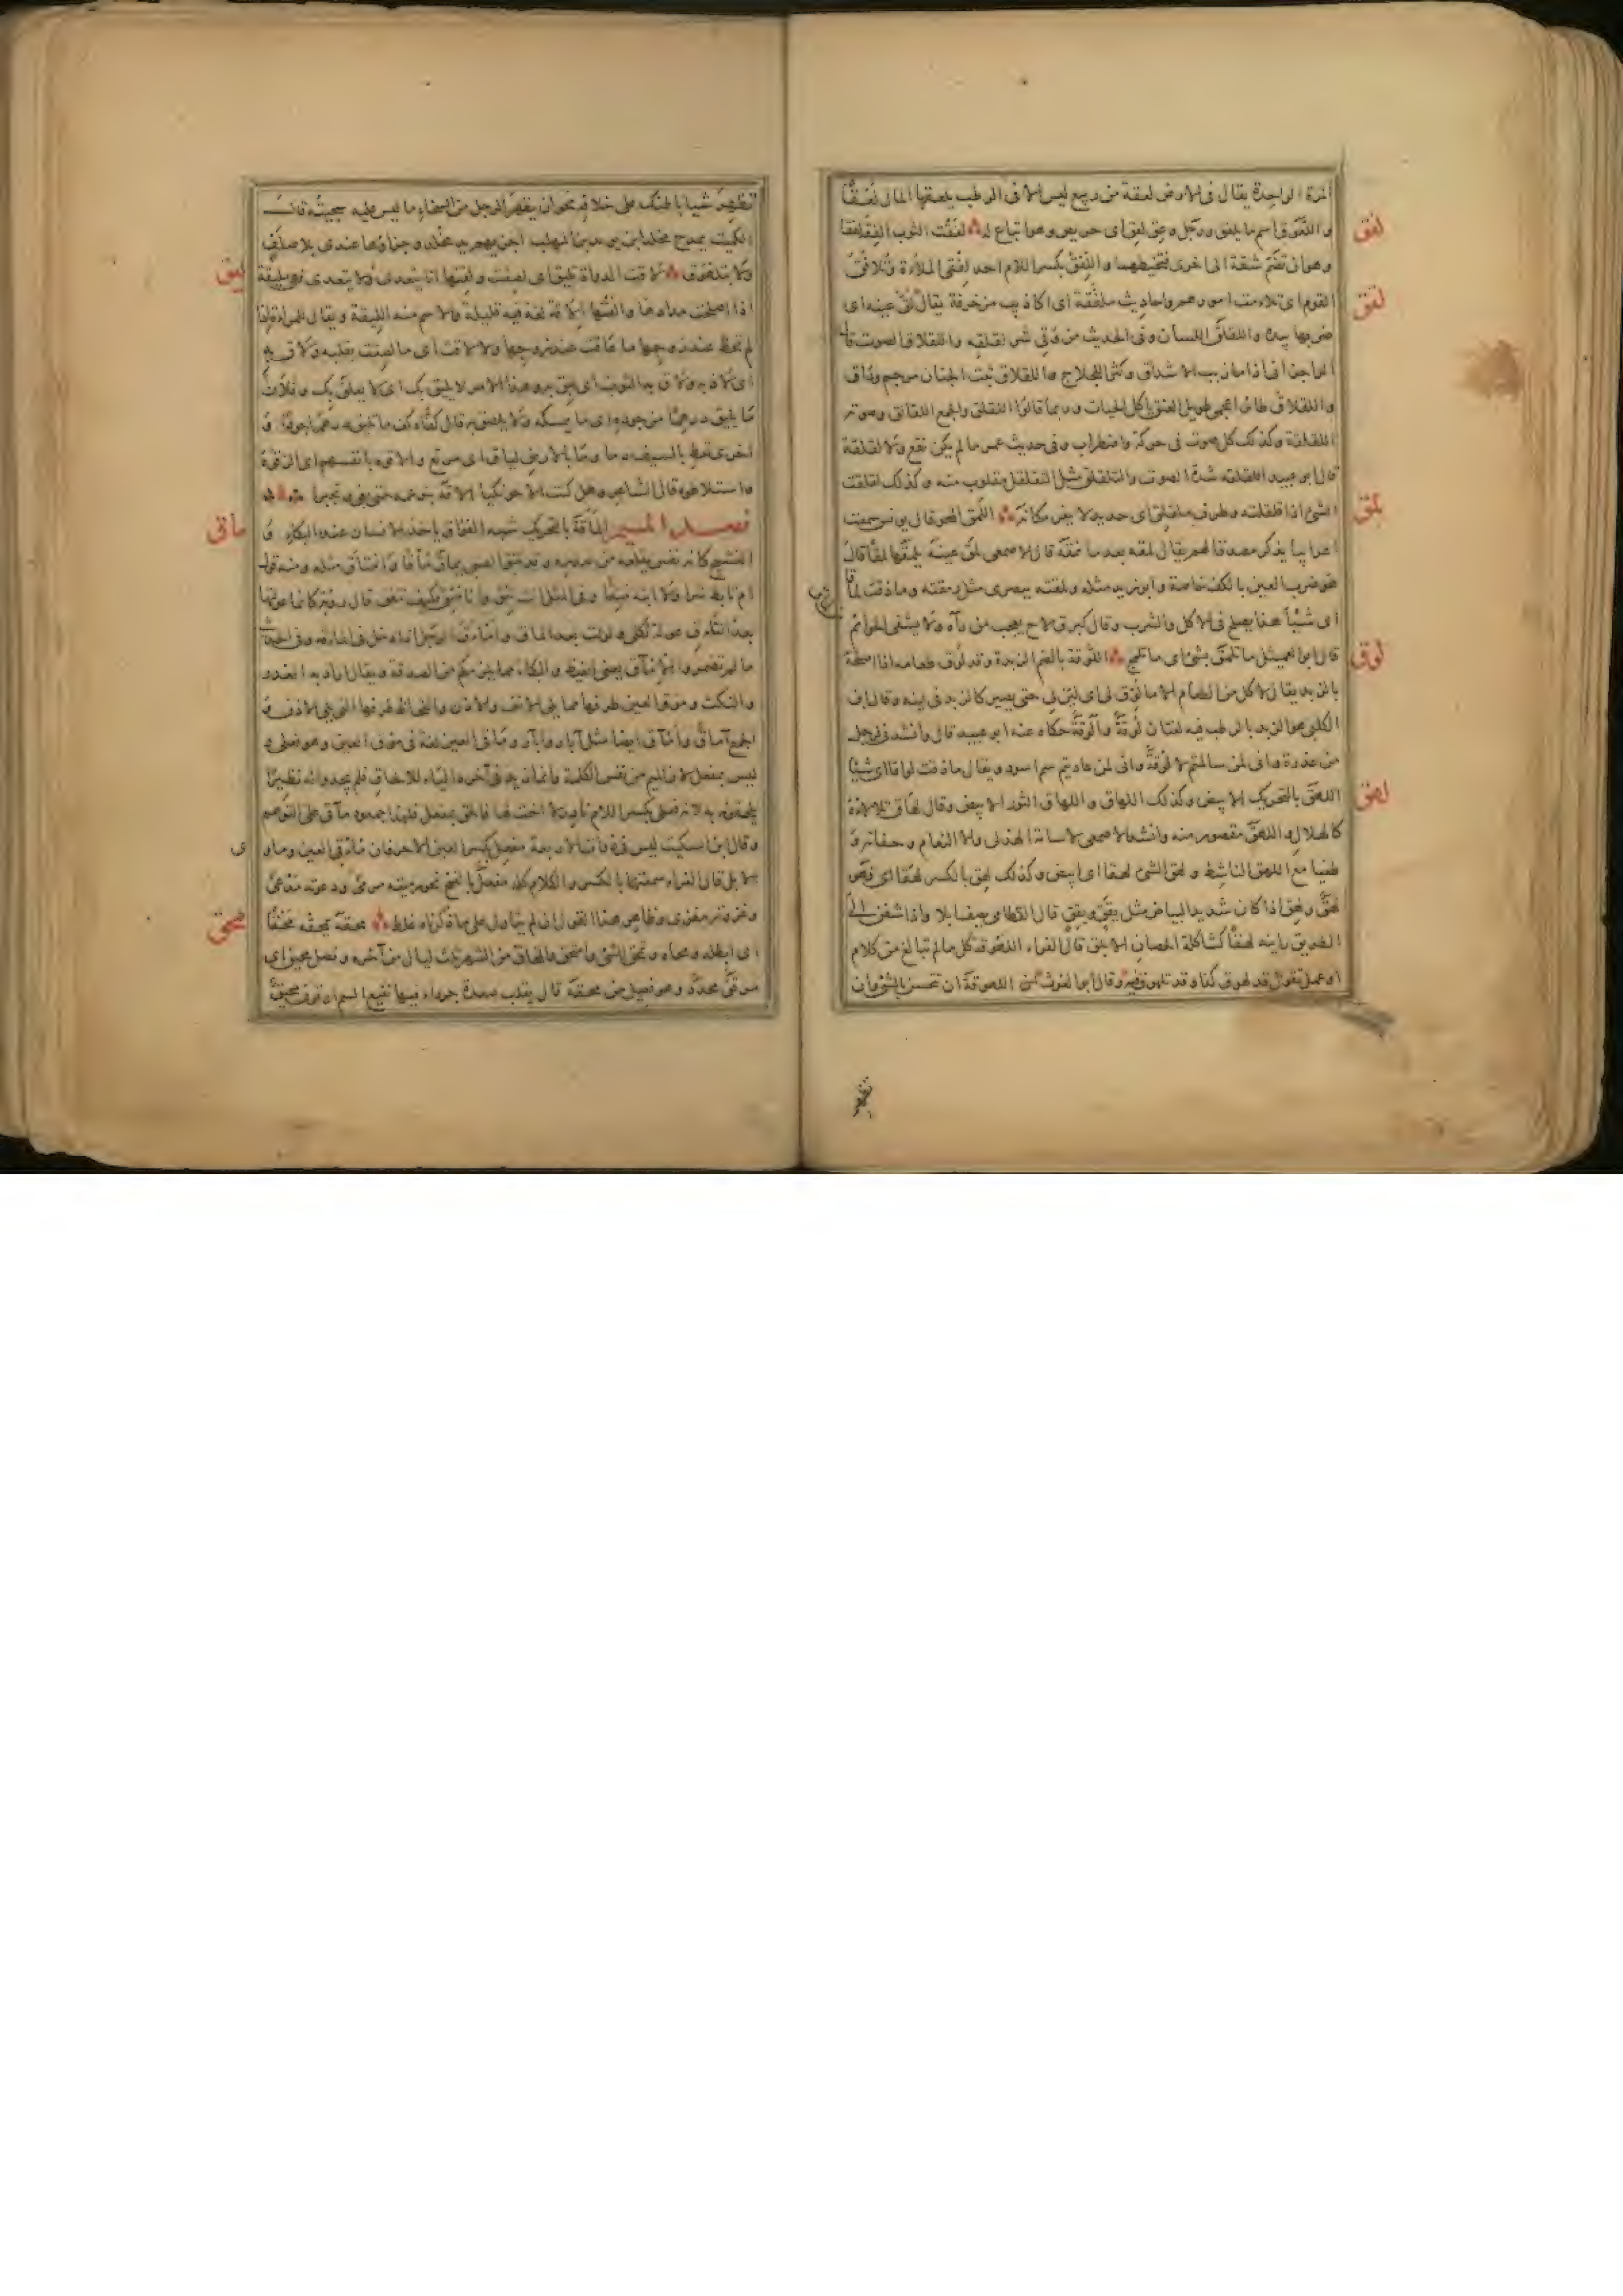 المرة الواحدة يقال فى الارض لعقة من ربيع ليس الا فى الرطب يلعقها المال لعقا
و اللعوق اسم ما يلعق ورجل وعق لعق اى حريص وهو اتباع له لفقت الثوب الفقه لفقا
لفق
وهو ان تضم شقة الى اخرى فتخيطهما واللفق بكسر اللام احد لفقى الملاءة وتلافق
القوم اى تلاءمت امورهم واحاديث ملفقة اى اكاذيب مزخرفة يقال لق عينه اى
لقق
ضربها بيده واللقلق اللسان وفى الحديث من وقى شر لقلقه واللقلاق الصوت قال
الراجز انى اذا ما زبب الاشداق وكثر اللجلاج واللقلاق ثبت الجنان مرجم وداق
واللقلاق طائر اعجمى طويل العنق ياكل الحيات وربما قالوا اللقلق والجمع اللقالق وصوته
اللقلقة وكذلك كل صوت فى حركة واضطراب وفى حديث عمر ما لم يكن نقع ولا لقلقة
قال ابو عبيد اللقلقة شدة الصوت والتلقلق مثل التقلقل مقلوب منه وكذلك لقلقت
الشئ اذا قلقلته وطرف ملقلق اى حديد لا يقر مكانه اللمق المحو قال يونس سمعت
لمق
اعرابيا يذكر مصدقا لهم يقال لمقه بعد ما نمقه قال الاصمعى لمق عينه يلمقها لمقا قال
هو ضرب العين بالكف خاصة وابو زيد مثله ولمقته ببصرى مثل رمقته وما ذقت لماقا
اى شيئا هذا يصلح فى الاكل والشرب وقال كبرق لاح يعجب من رآه ولا يشفى الحوائم
قال ابو العميثل ما تلمق بشئ اى ما تلمج اللوقة بالضم الزبدة وقد لوق طعامه اذا اصلحه
لوق
بالزبد يقال لا آكل من الطعام الا ما لوق لى اى لين لى حتى يصير كالزبد فى لينه وقال ابن
الكلبى هو الزبد بالرطب فيه لغتان لوقة والوقة حكاه عنه ابو عبيد قال وانشد فى رجل
من عذرة وانى لمن سالمتم لالوقة وانى لمن عاديتم سم اسود ويقال ما ذقت لواقا اى شيئا
اللهق بالتحريك الابيض وكذلك اللهاق واللهاق الثور الابيض وقال لهاق تلالؤه
لهق
كالهلال واللهق مقصور منه وانشد الاصمعى لاسامة الهذلى والا النعام وحفانه و
طغيا مع اللهق الناشط ولهق الشئ لهقا اى ابيض وكذلك لهق بالكسر لهقا اى فهو
لهق ولهق اذا كان شديد البياض مثل يقق ويقق قال القطامى يصف ابلا واذا شفن الى
الطريق راينه لهقا كشاكلة الحصان الابلق قال الفراء اللهوقة كل ما لم تبالغ من كلام
او عمل تقول قد لهوق كذا وقد تلهوق فيه وقال ابو الغوث اللهوقة ان تتحسن بالشئ وان
تظهر
تظهر شيا باطنك على خلافه نحو ان يظهر الرجل من السخاء ما ليس عليه سجيته قال
الكميت يمدح مخلد ابن يزيد بن المهلب اجزيهم يد مخلد وجزاؤها عندى بلا صلف
ولا بتلهوق لاقت الدواة تليق اى لصقت ولقتها انا يتعدى ولا يتعدى فهى مليقة
ليق
اذا اصلحت مدادها والقتها الاقة لغة فيه قليلة والاسم منه الليقة ويقال للمراة اذا
لم تحظ عند زوجها ما عاقت عند زوجها ولا لاقت اى ما لصقت بقلبه ولاق به
اى لاذ به ولاق به الثوب اى لبق به وهذا الامر لا يليق بك اى لا يعلق بك وفلان
ما يليق درهما من جوده اى ما يمسكه ولا يلصق به قال كفاه كف ما تليق درهما جودا و
اخرى تعط بالسيف دما وما بالارض لياق اى مرتع والاقوه بانفسهم اى الزقوه
واستلاطوه قال الشاعر وهل كنت الا حوتكيا الاقه بنو عمه حتى بغى وتجبرا
فصل الميم الماقة بالتحريك شبه الفواق ياخذ الانسان عند البكاء و
مأق
النشيج كانه نفس يقلعه من صدره وقد مئق الصبى يماق مأقا وامتأق مثله ومنه قول
ام تابط شرا ولا ابته مئقا وفى المثل انت تئق وانا مئق فكيف نتفق قال رؤبة كانما عولتها
بعد التاق عولة ثكلى ولولت بعد الماق وامأق الرجل اذا دخل فى الماقة وفى الحديث
ما لم تضمروا الامآق يعنى الغيظ والبكاء مما يلزمكم من الصدقة ويقال اراد به الغدر
والنكث ومؤق العين طرفها مما يلى الانف والاذن واللحاظ طرفها الذى يلى الاذن و
الجمع آماق وأمآق ايضا مثل آبار وأبآر ومأقى العين لغة فى مؤق العين وهو فعلى و
ليس بمفعل لان الميم من نفس الكلمة وانما زيد فى آخره الياء للالحاق فلم يجدوا له نظيرا
يلحقونه به لان فعلى بكسر اللام نادر لا اخت لها فالحق بمفعل فلهذا جمعوه مآق على التوهم
وقال ابن السكيت ليس فى ذوات الاربعة مفعل بكسر العين الا حرفان مأقى العين وماوى
الابل قال الفراء سمعتهما بالكسر والكلام كله مفعل بالفتح نحو رميته مرمى ودعوته مدعى
وغزوته مغزى وظاهر هذا القول ان لم يتاول على ما ذكرناه غلط محقه يمحقه محقا
محق
اى ابطله ومحاه وتمحق الشئ وامتحق والمحاق من الشهر ثلث ليال من آخره ونصل محيق اى
مرقق محدد وهو فعيل من محقه قال يقلب صعدة جرداء فيها نقيع السم او قرن محيق